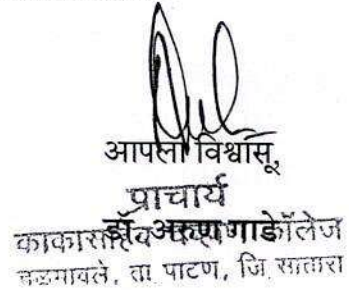 आपला विश्वासू,
प्राचार्य
डॉ. अरुण गाडे
काकासाहेब चव्हाण कॉलेज
तळमावले, ता. पाटण, जि. सातारा